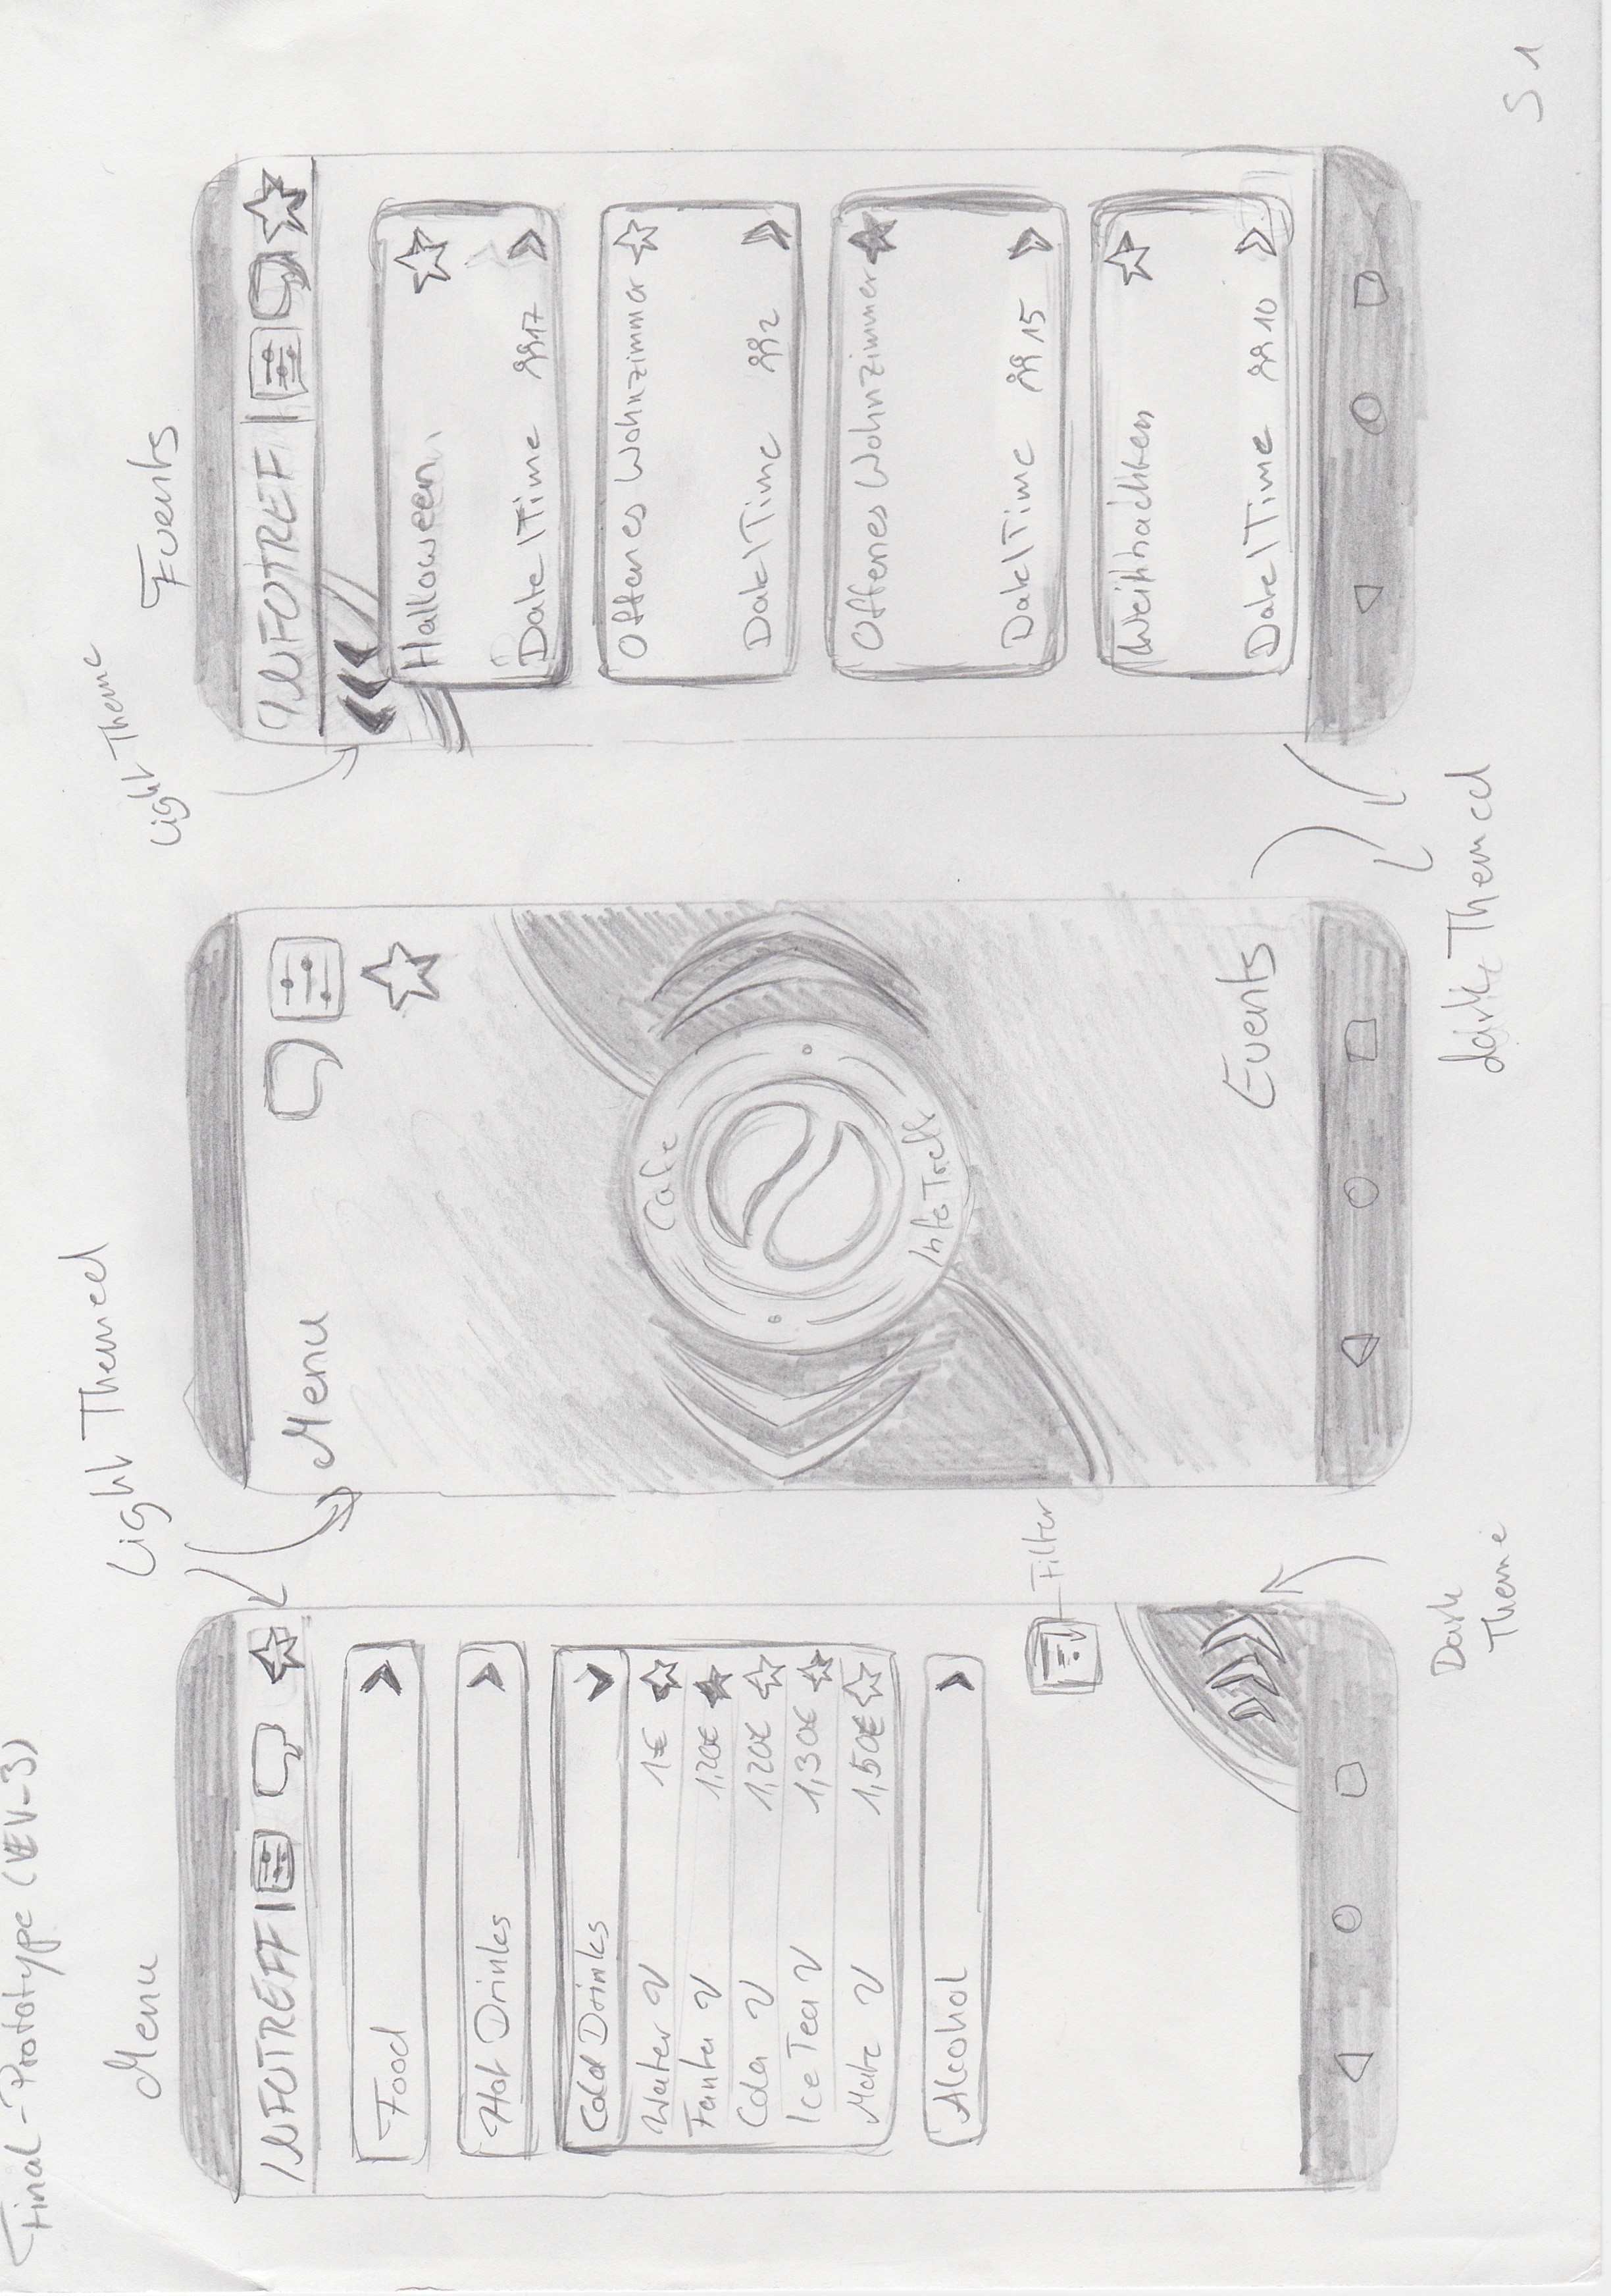 Final-Prototype (VEV-3)
Menu
Light Themed
INFOTREFF |
Food
Hot Drinks
Cold Drinks
Water V 1€
Fanta V 1,20€
Cola V 1,20€
Ice Tea V 1,30€
Mate V 1,50€
Alcohol
Filter
Dark
Theme
Menu
Cafe
InfoTreff
Events
dark Themed
Light Theme
Events
INFOTREF |
Halloween
Date|Time 17
Offenes Wohnzimmer
Date|Time 2
Offenes Wohnzimmer
Date|Time 15
Weihnachten
Date|Time 10
S 1